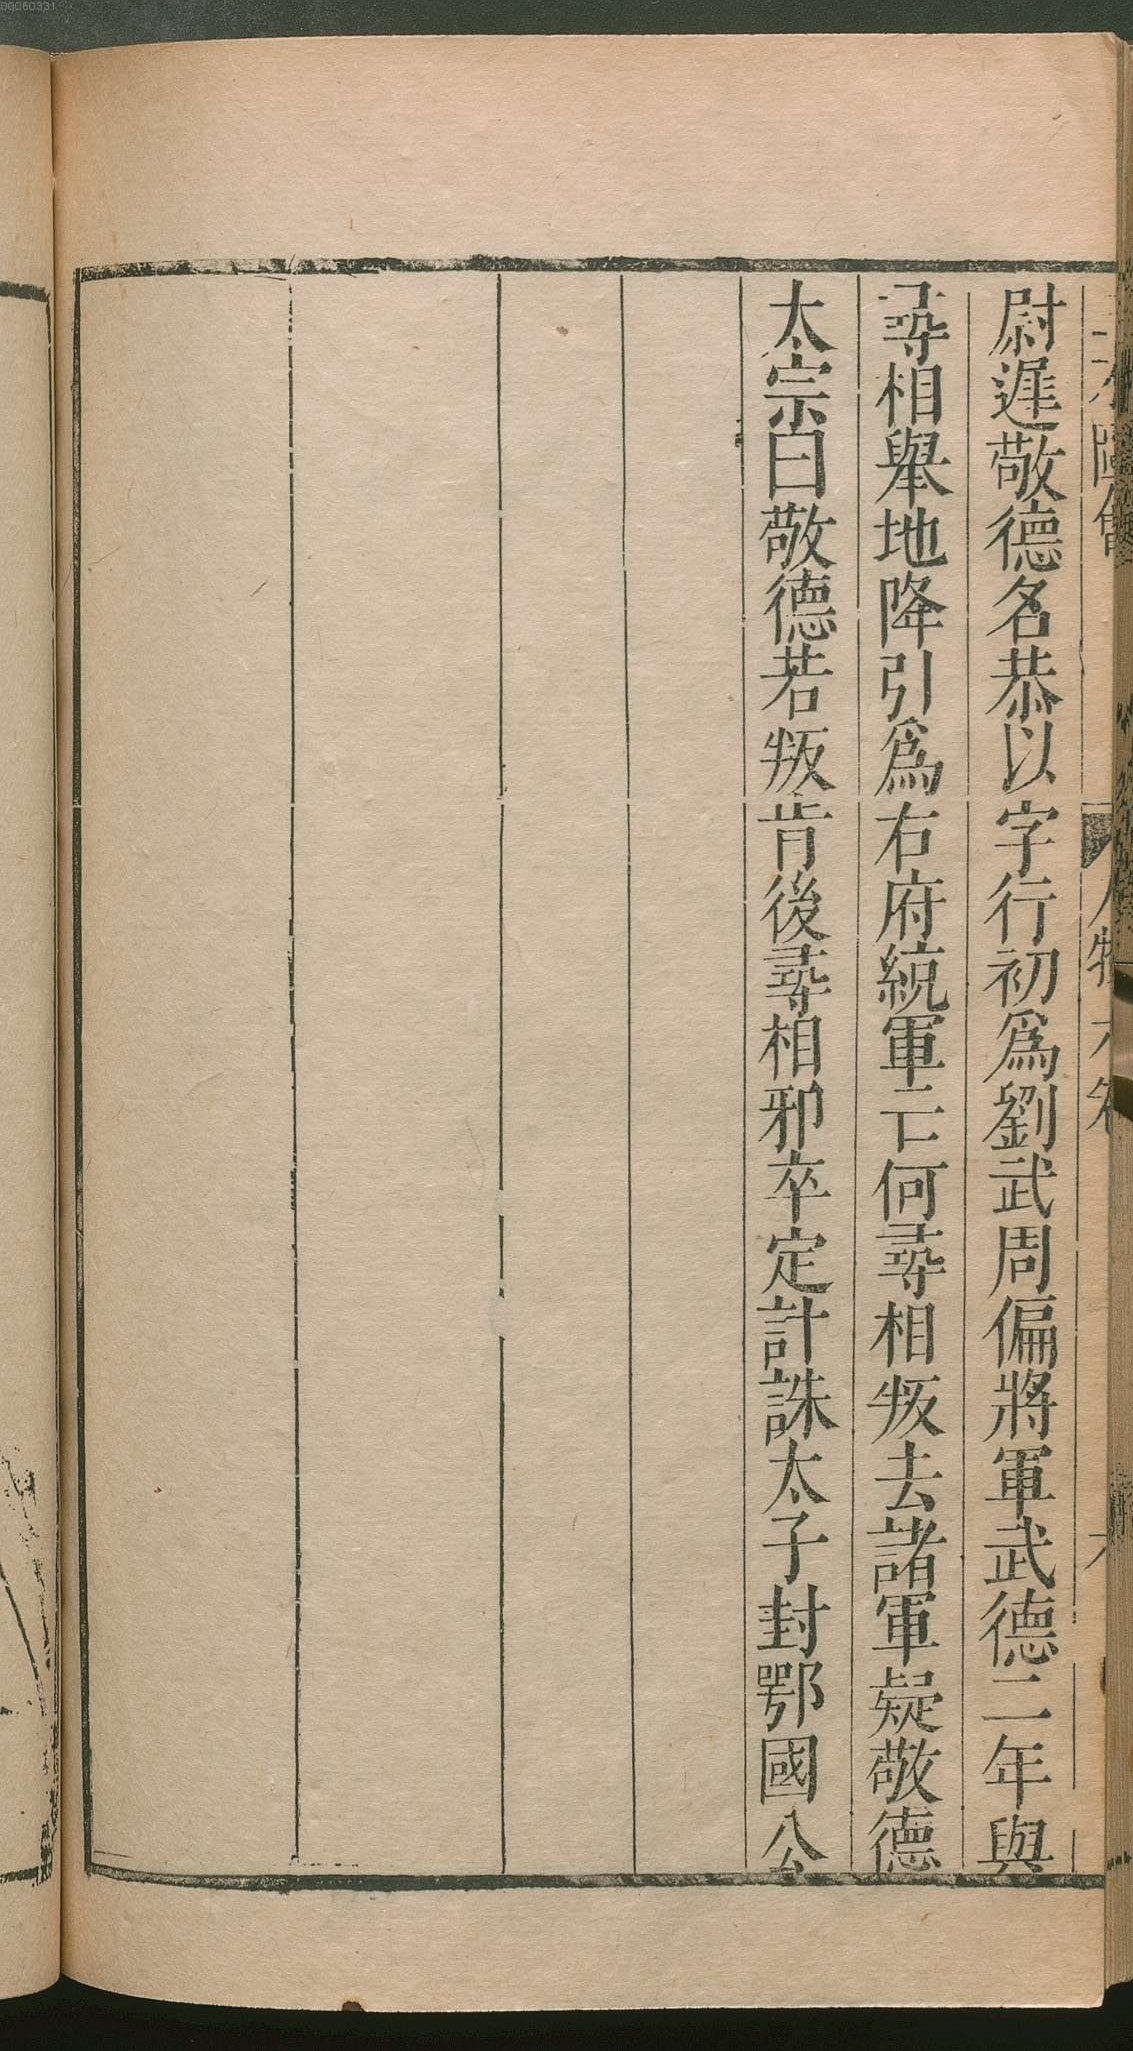 00060331
尉遲敬德名恭以字行初爲劉武周偏將軍武德二年與
尋相舉地降引爲右府統軍亡何尋相叛去諸軍疑敬德
太宗曰敬德若叛肯後尋相邪卒定計誅太子封鄂國公